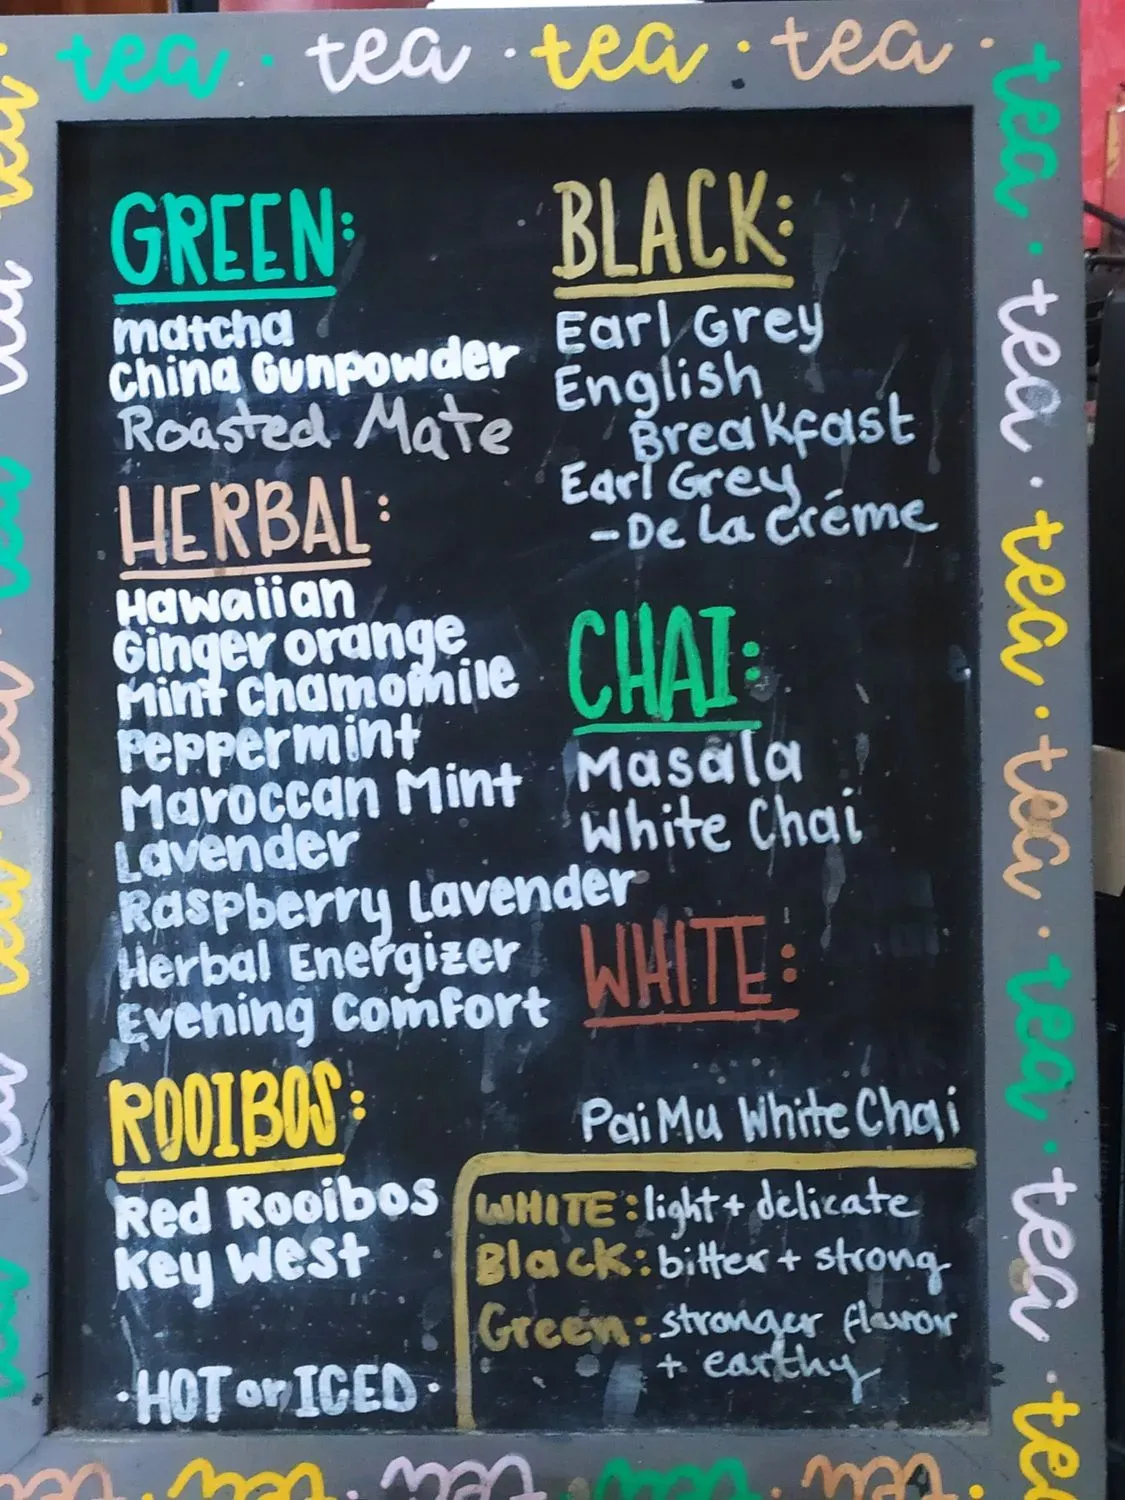 tea · tea · tea · tea ·
GREEN:
matcha
China Gunpowder
Roasted Mate
HERBAL:
Hawaiian
Ginger orange
Mint Chamomile
Peppermint
Maroccan Mint
Lavender
Raspberry Lavender
Herbal Energizer
Evening Comfort
ROOIBOS:
Red Rooibos
Key West
·HOT or ICED·
BLACK:
Earl Grey
English
Breakfast
Earl Grey
-De La Créme
CHAI:
Masala
White Chai
WHITE:
Pai Mu White Chai
WHITE: light + delicate
Black: bitter + strong
Green: stronger flavor
+ earthy
tea · tea · tea · tea · tea · tea · tea
tea · tea · tea · tea · tea ·